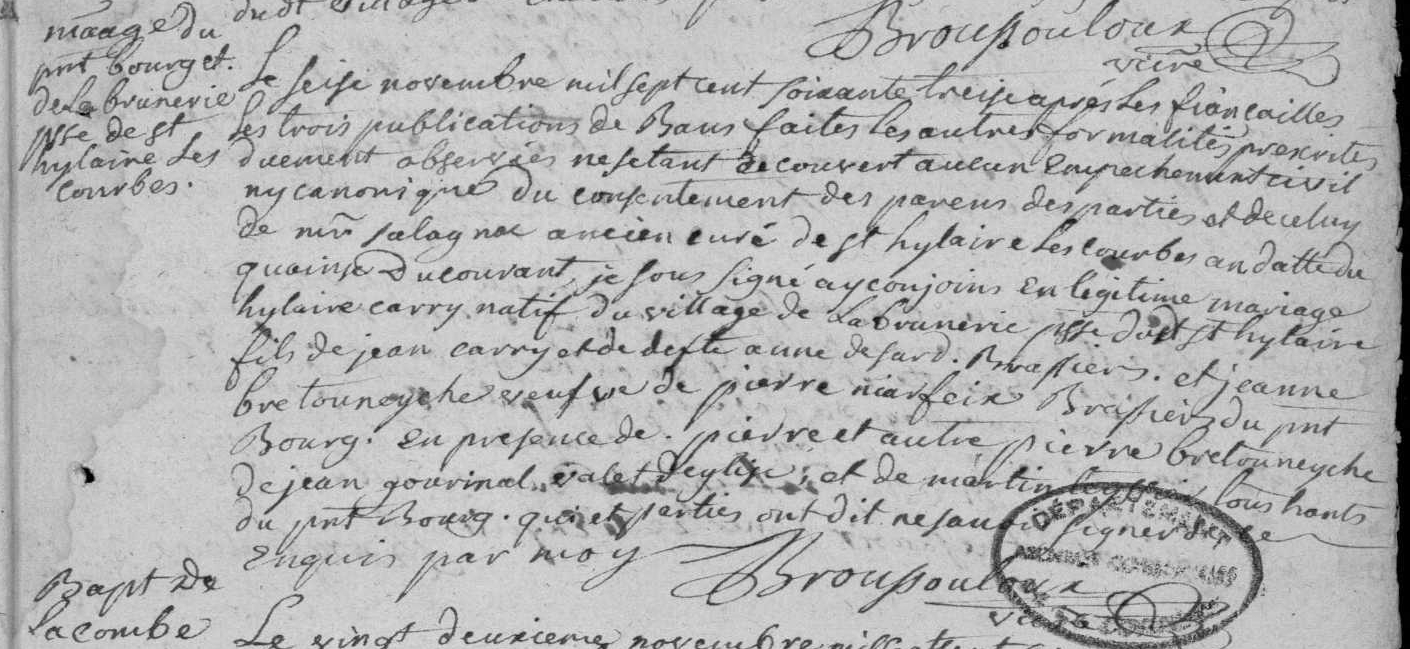 dudt village
Broussouloux
vicre
maage du
pnt bourg et
de La brunerie
psse de st
hylaire Les
courbes.
Le seise novembre mil sept cent soixante treise après Les fiançailles
Les trois publications de Bans faites Les autres formalités prexcrites
duement observées ne setant decouvert aucun Empechement civil
ny canonique du consentement des parens des parties et de celuy
de mr salagnac ancien curé de st hylaire Les courbes an datte du
quainse Du courant, je sous signé ay conjoins En legitime mariage
hylaire carry natif du village de La brunerie psse. dudt st hylaire
fils de jean carry et de defte anne desard. Brassiers. et jeanne
bretouneyche veufve de pierre niarfeix Brassiere du pnt
Bourg. En presence de. pierre et autre pierre bretouneyche
De jean gourinal valet deglise; et de martin tous hants
du pnt Bourg. qui et parties ont dit ne savoir signer de ce
Enquis par moy
Broussouloux
vicre
DÉPARTEMENTALES
Bapt De
Lacombe
Le vingt deuxieme novembre mil sept cent